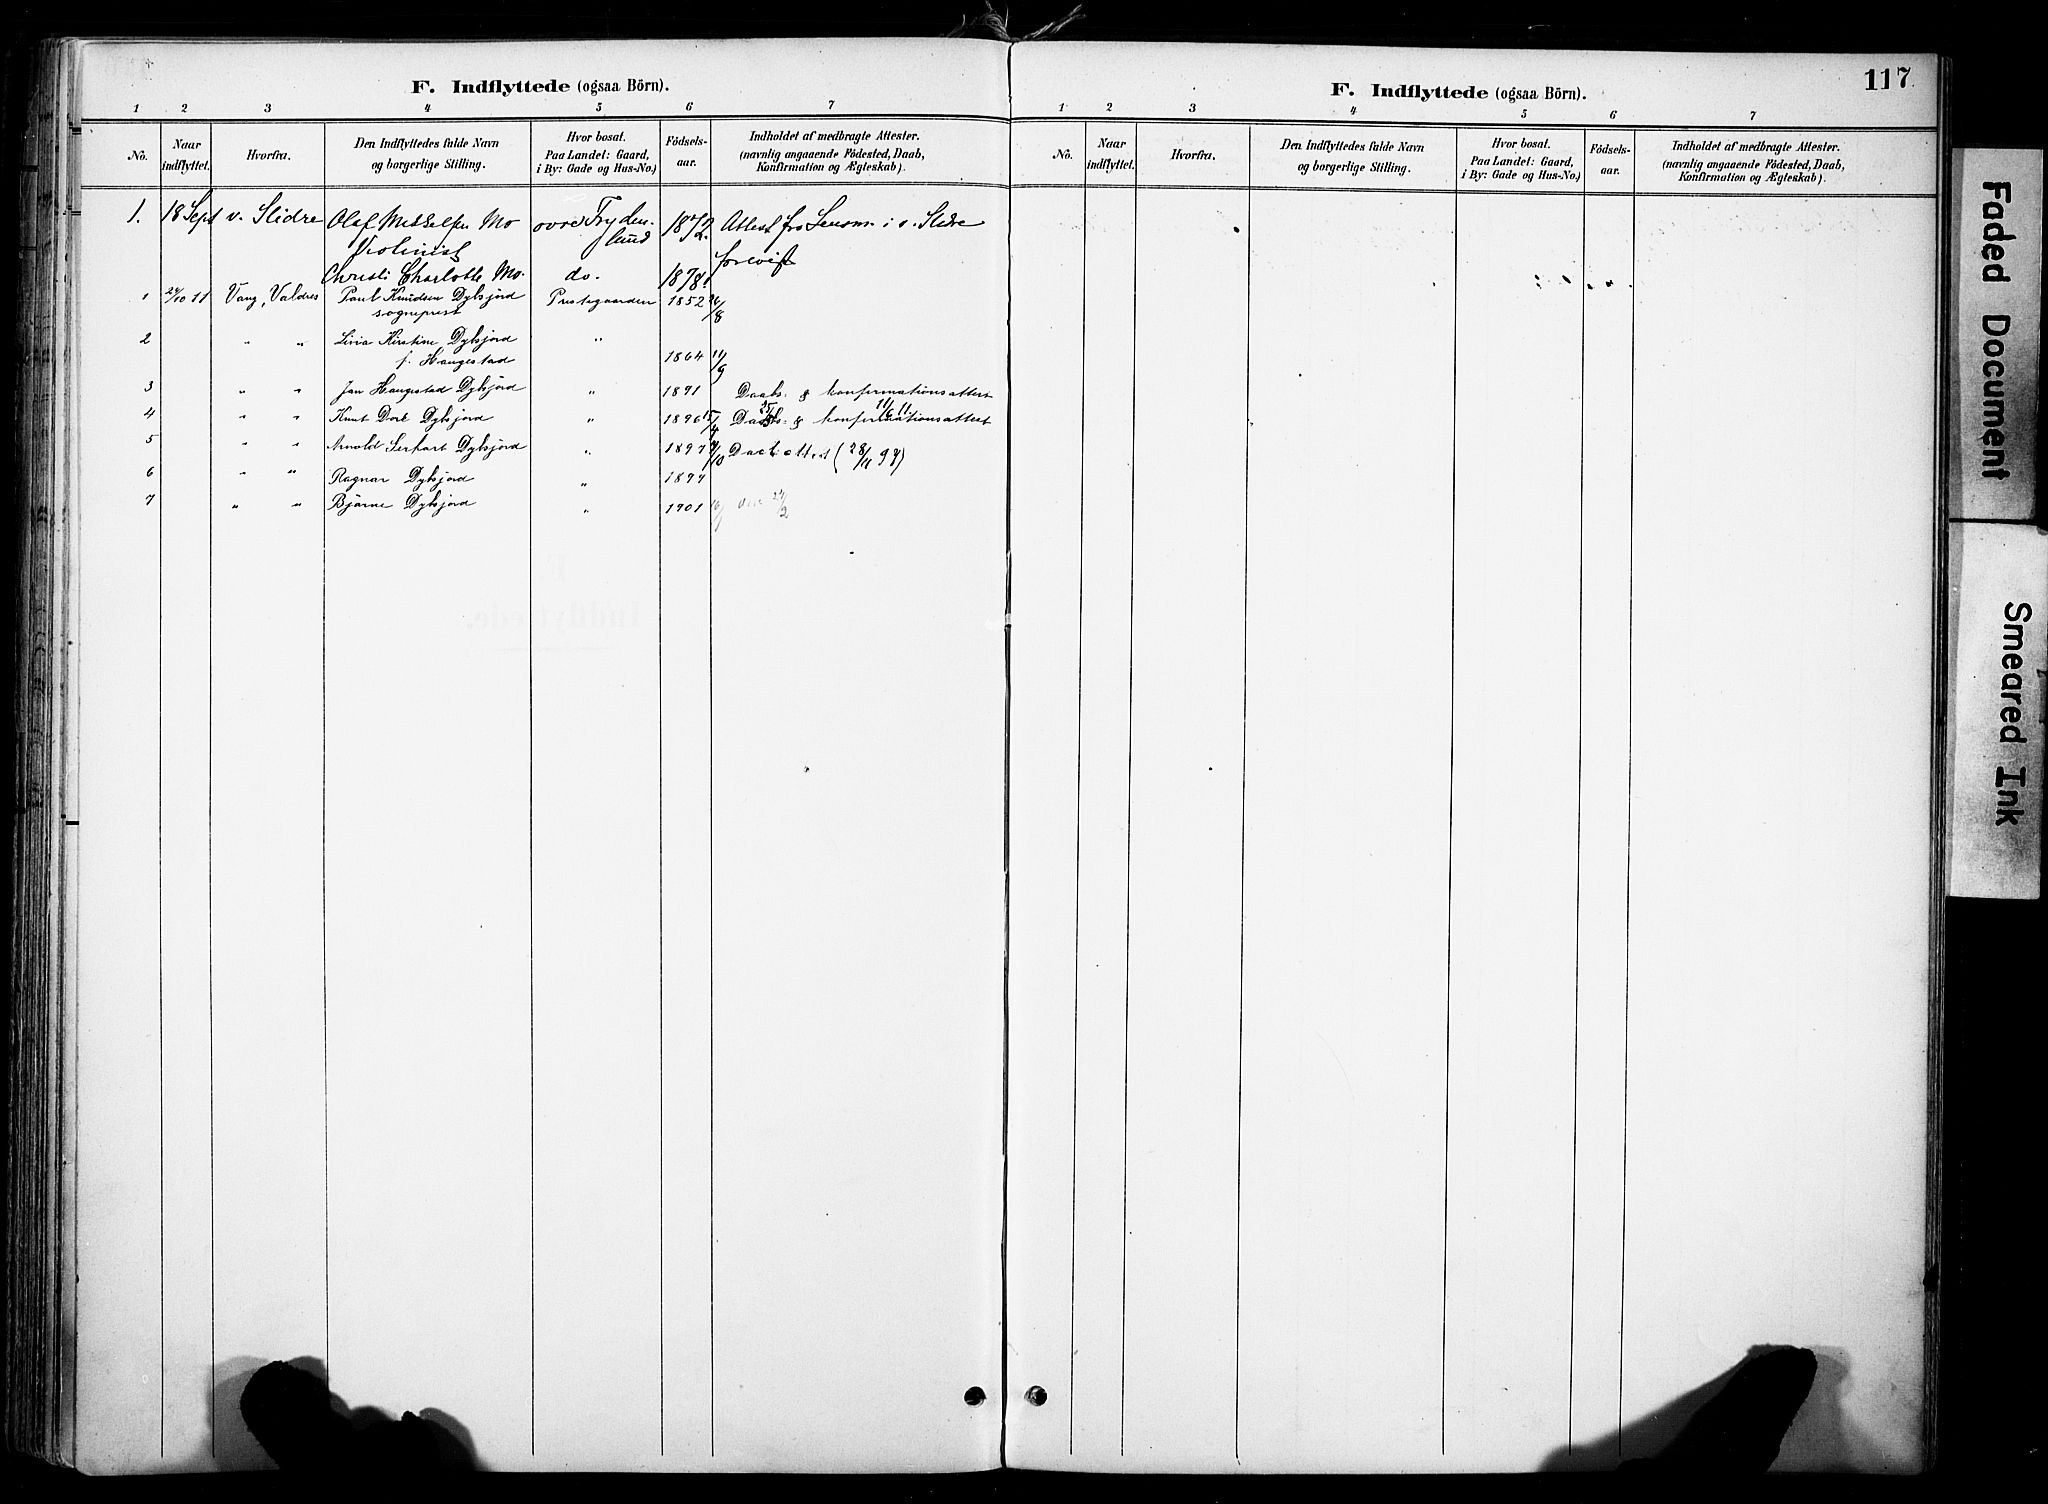 F. Indflyttede (ogsaa Börn).
1 2 3 4 5 6 7
No. Naar indflyttet. Hvorfra. Den Indflyttedes fulde Navn og borgerlige Stilling. Hvor bosat. Paa Landet: Gaard, i By: Gade og Hus-No.) Födsels-aar. Indholdet af medbragte Attester. (navnlig angaaende Födested, Daab, Konfirmation og Ægteskab).
1. 18 Sept v. Slidre Olaf Mo øvre Fryden- 1872. Attest fra i v. Slidre
Violinist lund forevist
Christi Charlotte Mo. do. 1878.
1 24/10 11 Vang, Valdres Paul Knudsen Dybsjord Prestegaarden 1852 26/8
sogneprest
2 " " Kirstine Dybsjord "
f. Haugestad 1864 11/9
3 " " Jan Haugestad Dybsjord " 1891 Daabs- & konfirmationsattest
4 " " Knut Dybsjord " 1896 15/4 Daabs- & konfirmationsattest 11/6 11
5 " " Arnold Dybsjord " 1897 /10 (28/11 97)
6 " " Ragnar Dybsjord " 1899
7 " " Bjarne Dybsjord " 1901
F. Indflyttede (ogsaa Börn). 117
1 2 3 4 5 6 7
No. Naar indflyttet. Hvorfra. Den Indflyttedes fulde Navn og borgerlige Stilling. Hvor bosat. Paa Landet: Gaard, i By: Gade og Hus-No.) Födsels-aar. Indholdet af medbragte Attester. (navnlig angaaende Födested, Daab, Konfirmation og Ægteskab).
Faded Document
Smeared Ink